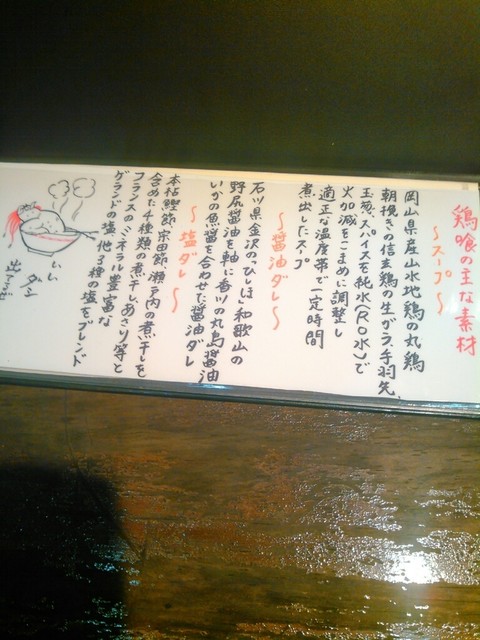 鶏喰の主な素材
〜スープ〜
岡山県産山水地鶏の丸鶏
朝挽きの信玄鶏の生がら、手羽先、
玉葱、スパイスを純水(RO水)で
火加減をこまめに調整し
適正な温度帯で一定時間
煮出したスープ
〜醤油ダレ〜
石川県金沢の「ひしほ」、和歌山の
野尻醤油を軸に香川の丸島醤油
いかの魚醤を合わせた醤油ダレ
〜塩ダレ〜
本枯鰹節、宗田節、瀬戸内の煮干しを
含めた4種類の煮干し、あさり等と
フランスのミネラル豊富な
ゲランドの塩、他3種の塩をブレンド
いい
ダシ
出てまっせ